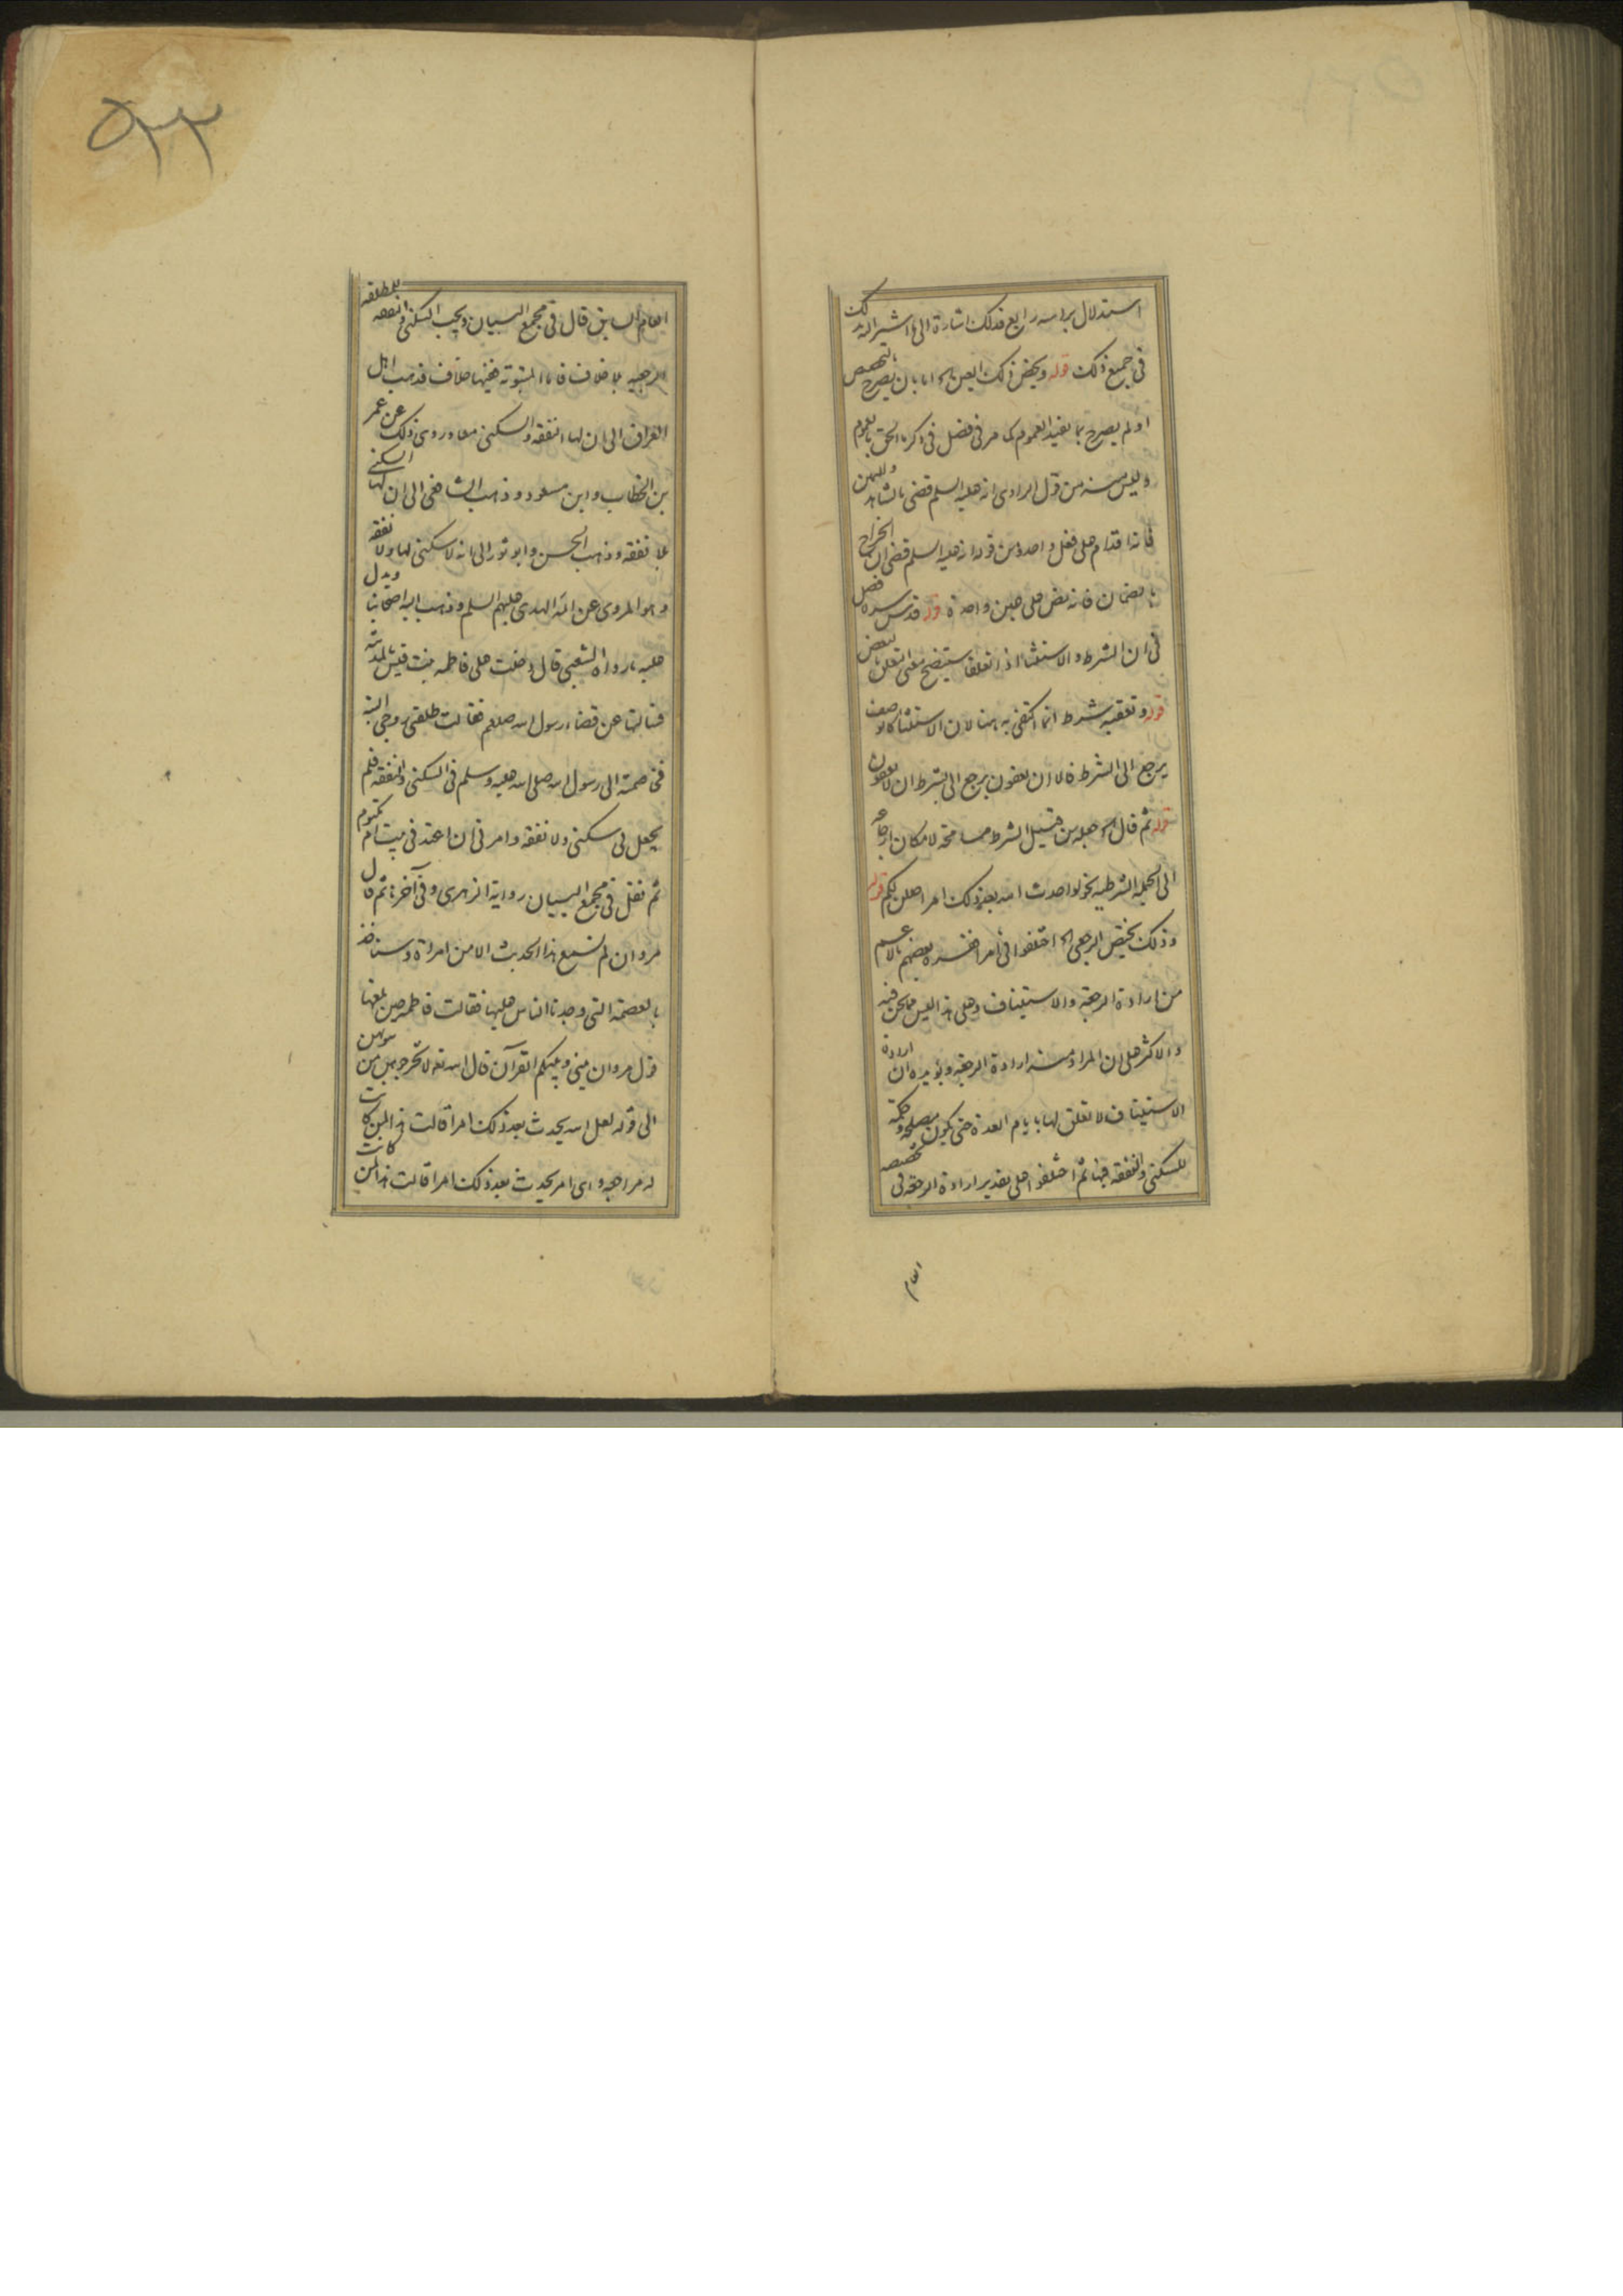 استدلال برابسه رابع فذلك اشارة الى ما اشير اليه لك
فى جميع ذلك قوله ويخص ذلك العين الخ اما بان يصرح بالتخصيص
او لم يصرح بما يفيد العموم كما مر فى فصل فى ذكر ما الحق بالعموم
وليس منه من قول الراوى انه عليه السلم قضى بالشاهد واليمين
فانه اقدام على فعل واحد ومن قوله انه عليه السلم قضى ان الخراج
بالضمان فانه نص على عين واحدة قوله قدس سره فصل
فى ان الشرط والاستثناء اذا تعلقا سيتضح معنى تعلق بالبعض
قوله وتعقبه شرط انما اكتفى به هنا لان الاستثناء كالوصف
يرجع الى الشرط فالا ان يعفون يرجع الى بشرط ان لا يعفون
قوله ثم قال الخ جعله من قبيل الشرط مسامحة لامكان ارجاعه
الى الجملة الشرطية بنحو لو احدث الله بعد ذلك امرا لعلن لكم قوله
وذلك يختص الرجعى الخ اختلفوا فى امرا ففسره بعضهم بالاعم
من ارادة الرجعة والاستيناف وعلى هذا ليس مما نحن فيه
والاكثر على ان المراد منه ارادة الرجعة ويؤيده ان ارادة
الاستيناف لا تعلق لها بايام العدة حتى يكون مصلحة وحكمة
للسكنى والنفقة فيها ثم اختلفوا على تقدير ارادة الرجعة فى تخصيصه
العام
٥٣٣
العام السابق قال فى مجمع البيان ويجب السكنى والنفقه للمطلقه
الرجعيه بلا خلاف فاما المبتوته ففيها خلاف فذهب اهل
العراق الى ان لها النفقه والسكنى معا وروى ذلك عن عمر
بن الخطاب وابن مسعود وذهب الشافعى الى ان لها السكنى
بلا نفقه وذهب الحسن وابو ثور الى انه لا سكنى لها ولا نفقه
وهو المروى عن ائمة الهدى عليهم السلم وذهب اليه اصحابنا ويدل
عليه ما رواه الشعبى قال دخلت على فاطمه بنت قيس بالمدينه
فسالتها عن قضاء رسول الله صلعم فقالت طلقنى زوجى البته
فخاصمته الى رسول الله صلى الله عليه وسلم فى السكنى والنفقه فلم
يجعل لى سكنى ولا نفقه وامرنى ان اعتد فى بيت ام مكتوم
ثم نقل فى مجمع البيان رواية الزهرى وفى آخره ثم قال
مروان لم نسمع هذا الحديث الا من امراة وسناخذ
بالعصمة التى وجدنا الناس عليها فقالت فاطمه حين بلغها
قول مروان بينى وبينكم القرآن قال الله تعه لا تخرجوهن من بيوتهن
الى قوله لعل الله يحدث بعد ذلك امرا قالت هذا لمن كانت
له مراجعه واى امر يحدث بعد ذلك امرا قالت هذا لمن كانت